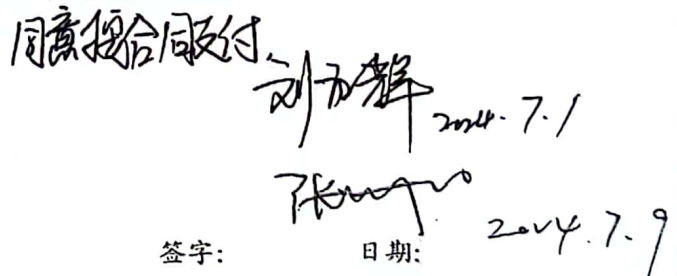 同意按合同支付
刘方辉 2024.7.1
张
2024.7.9
签字: 日期: